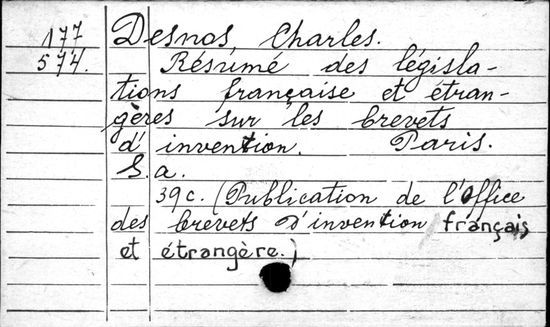 177 Desnos Charles.
574. Résumé des législa-
tions française et étran-
gères sur les brevets
d'invention. Paris.
S.a.
39c. (Publication de l'Office
des brevets d'invention français
et étrangère.)